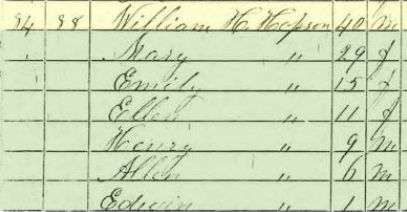 84 88 William H. Hopson 40 m
Mary " 29 f
Emily " 15 f
Ellen " 11 f
Henry " 9 m
Allen " 6 m
Edwin " 1 m